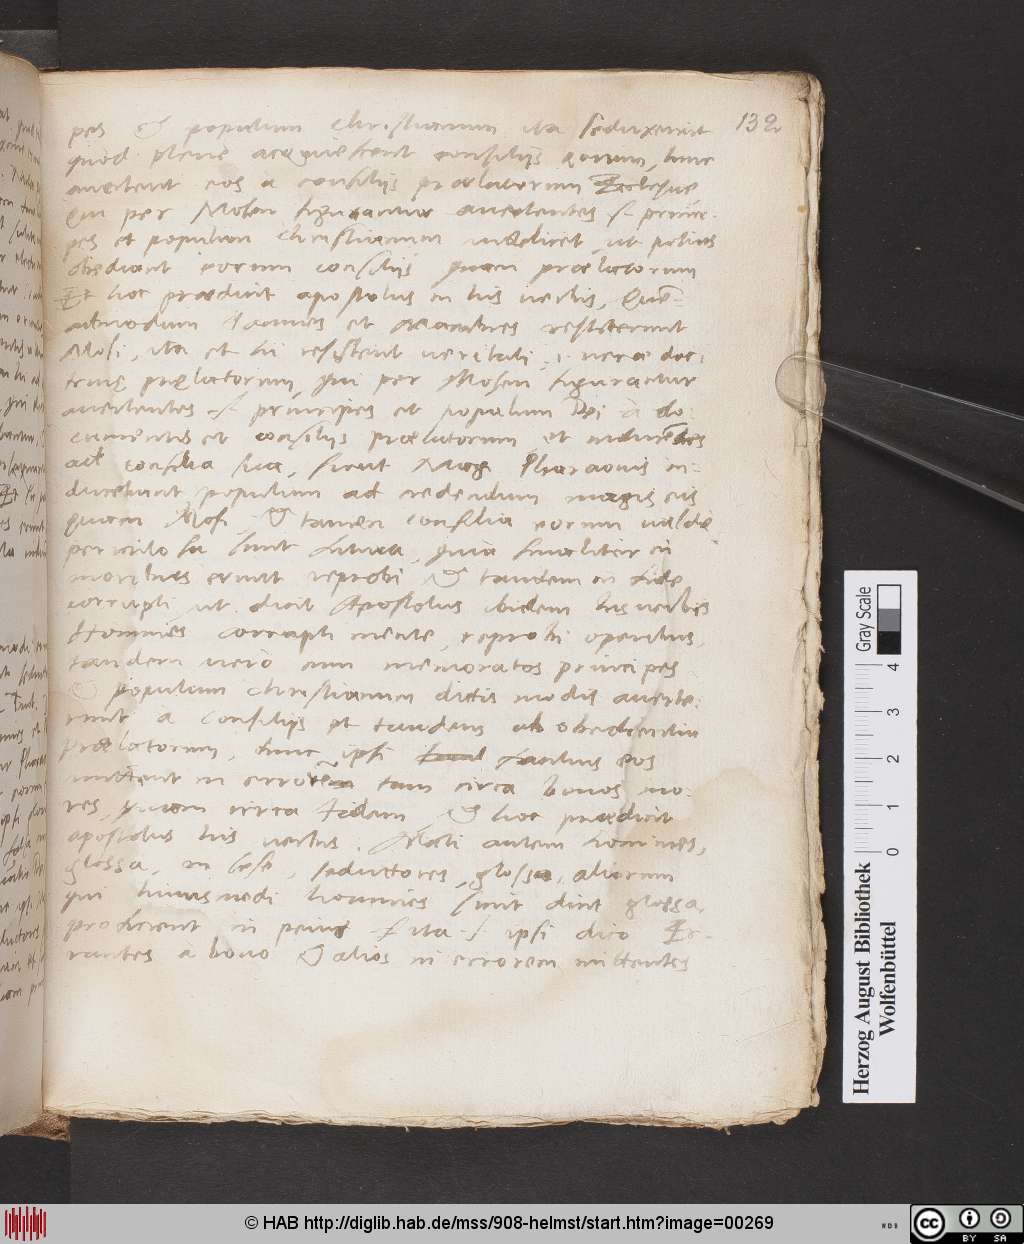 132
pes & populum christianum ita seduxerint
quod plene acquiescent consilijs eorum, tunc
avertent eos a consilijs prælatorum Ecclesiæ
Qui per Mosen figurantur avertentes s. princi-
pes et populum christianum videlicet, ut potius
obediant eorum consilijs quam prælatorum
Et hoc prædixit apostolus in his verbis, Quē-
admodum Iannes et Mambres restiterunt
Mosi, ita et hi resistent veritati, i. veræ doc-
trinę pręlatorum, qui per Mosen figurantur
avertentes s. principes et populum Dei à do-
cumentis et consilijs prælatorum et inducētes
ad consilia sua, sicut Magi Pharaonis in-
ducebant populum ad credendum magis eis
quam Mosi, & tamen consilia eorum valde
periculosa sunt futura, quia finaliter in
moribus erunt reprobi & tandem in fide
corrupti ut dicit Apostolus ibidem his verbis
Homines corrupti mente, reprobi operibus,
tandem vero cum memoratos principes
& populum christianum dictis modis averte-
rint à consilijs et tandem ab obedientia
Prælatorum, tunc ipsi facilius eos
mittent in errorem tam circa bonos mo-
res, quam circa fidem & hoc prædicit
apostolus his verbis. Mali autem homines,
glossa, in sese, seductores, glossa, aliorum
qui huiusmodi homines sunt dicit glossa,
proficient in peius ita s. ipsi dico Er-
rantes à bono & alios in errorem mittentes
Gray Scale
0 1 2 3 4
Herzog August Bibliothek
Wolfenbüttel
© HAB http://diglib.hab.de/mss/908-helmst/start.htm?image=00269
WDB
cc
BY SA